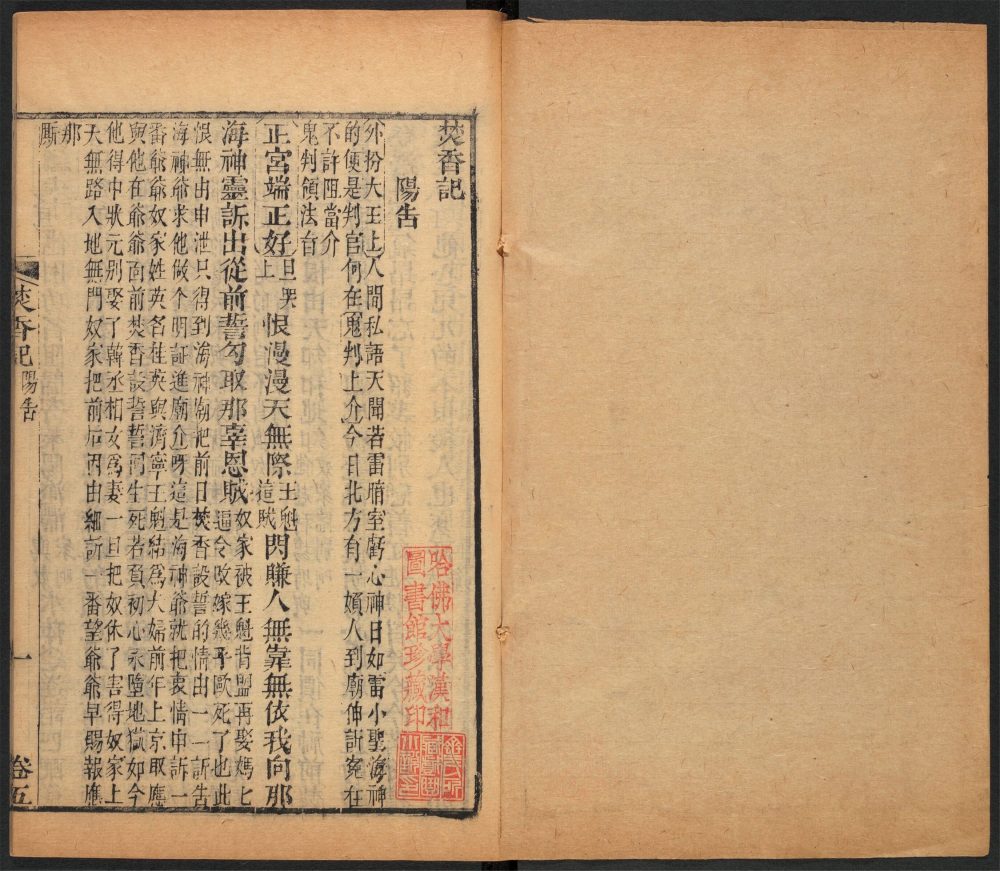 焚香記
陽告
外扮大王上人間私語天聞若雷暗室虧心神目如雷小聖海神
的便是判官何在鬼判上介今日北方有一嬪人到廟伸訴寃在
不許阻當介
鬼判領法旨
正宮端正好旦哭上恨漫漫天無際王魁這賊閃賺人無靠無依我向那
海神靈訴出從前誓勾取那辜恩賊奴家被王魁背盟再娶媽匕逼令改嫁幾乎歐死了也此
恨無由申泄只得到海神廟把前日焚香設誓的情由一一訴告
海神爺求他做个明証進廟介呀這是海神爺就把衷情申訴一
番爺爺奴家姓英名桂英與濟寧王魁結為夫婦前年上京取應
與他在爺爺面前焚香設誓誓同生死若負初心永墮地獄如今
他得中狀元別娶了韓丞相女爲妻一旦把奴休了害得奴家上
天無路入地無門奴家把前后因由細訴一番望爺爺早賜報應
那
厮
焚香記
陽告
一
卷五
哈佛大學漢和
圖書館珍藏印